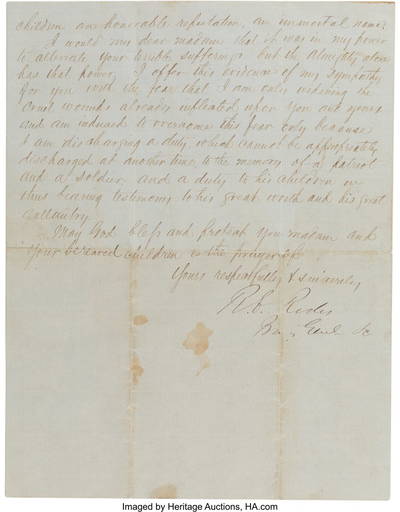 children an honorable reputation, an immortal name.
I would my dear madam that it was in my power
to alleviate your terrible sufferings but the Almighty alone
has that power. I offer this evidence of my sympathy
for you with the fear that I am only widening the
cruel wounds already inflicted upon you and yours
and am induced to overcome this fear only because
I am discharging a duty which cannot be appropriately
discharged at another time, to the memory of a patriot
and a soldier, and a duty to his children in
thus bearing testimony to his great worth and his great
gallantry.
May God bless and protect you madam and
your bereaved children is the prayer of
Yours respectfully & sincerely,
R. E. Rodes
Brig. Genl &c
Imaged by Heritage Auctions, HA.com